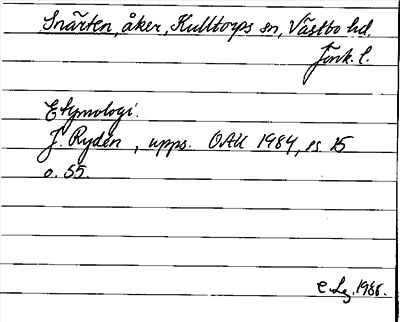 Snärten, åker, Kulltorps sn, Västbo hd,
Jönk. l.
Etymologi.
J. Rydén, upps. OAU 1984, ss 15
o. 55.
1988.